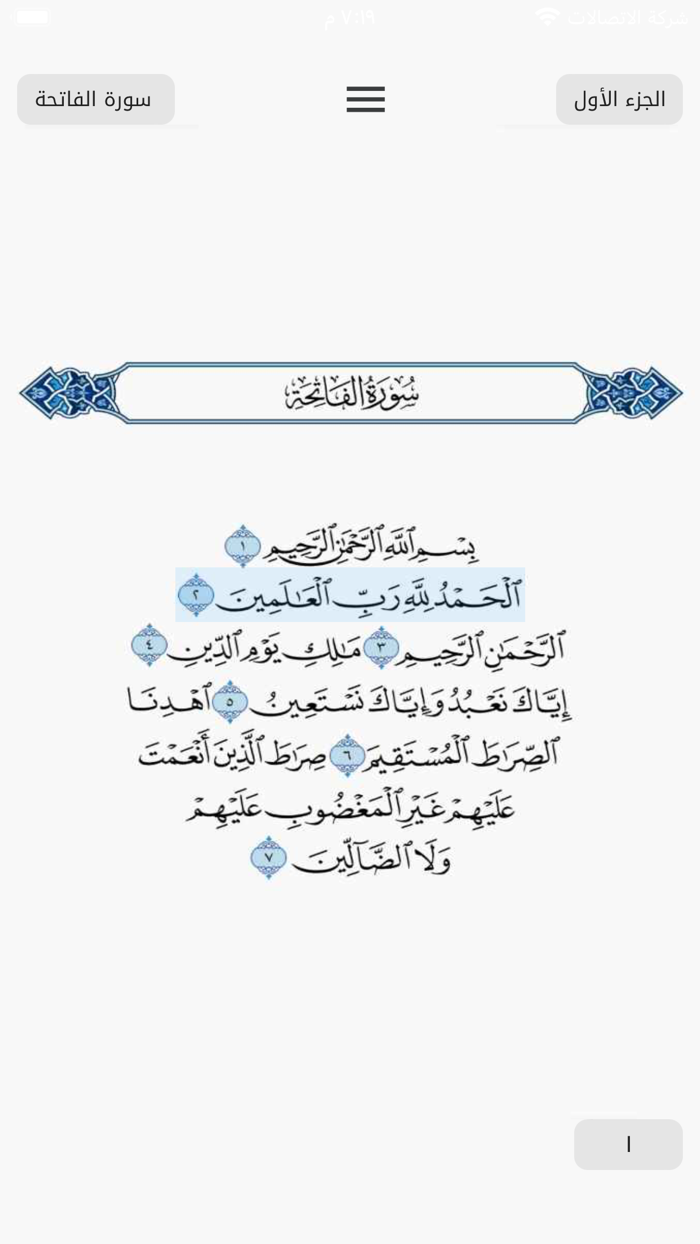 شركة الاتصالات ٧:١٩ م
الجزء الأول
سورة الفاتحة
سُورَةُ الفَاتِحَةِ
بِسْمِ ٱللَّهِ ٱلرَّحْمَٰنِ ٱلرَّحِيمِ ١
ٱلْحَمْدُ لِلَّهِ رَبِّ ٱلْعَٰلَمِينَ ٢
ٱلرَّحْمَٰنِ ٱلرَّحِيمِ ٣ مَٰلِكِ يَوْمِ ٱلدِّينِ ٤
إِيَّاكَ نَعْبُدُ وَإِيَّاكَ نَسْتَعِينُ ٥ ٱهْدِنَا
ٱلصِّرَٰطَ ٱلْمُسْتَقِيمَ ٦ صِرَٰطَ ٱلَّذِينَ أَنْعَمْتَ
عَلَيْهِمْ غَيْرِ ٱلْمَغْضُوبِ عَلَيْهِمْ
وَلَا ٱلضَّآلِّينَ ٧
١